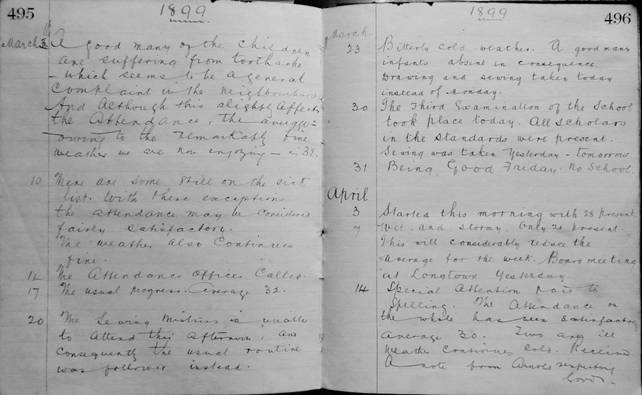 495
1899
March 3 A good many of the children
are suffering from toothache
- which seems to be a general
complaint in the neighbourhood.
And although this slightly affects
the Attendance, the average
owing to the remarkably fine
weather we are now enjoying - is 32.
10 There are some still on the sick
list. With these exceptions
the attendance may be considered
fairly satisfactory.
The weather also continues
fine.
14 The Attendance Officer Called.
17 The usual progress. Average 32.
20 The Sewing Mistress is unable
to attend this afternoon, and
consequently the usual routine
was followed instead.
1899
496
March
23 Bitterly cold weather. A good many
infants absent in consequence.
Drawing and sewing taken today
instead of Monday.
30 The Third Examination of the School
took place today. All Scholars
in the Standards were present.
Sewing was taken Yesterday - tomorrow
31 Being Good Friday. No School.
April
3 Started this morning with 28 present.
7 Wet and stormy. Only 23 present.
This will considerably reduce the
average for the week. Board meeting
at Longtown Yesterday.
14 Special Attention paid to
Spelling. The Attendance on
the whole has been satisfactory
average 30. Two are ill
Weather continues cold. Received
A note from Arnold respecting